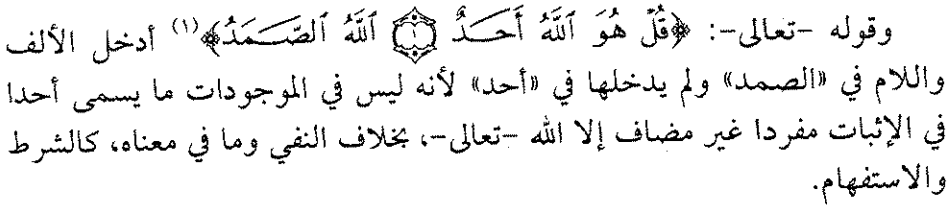 وقوله -تعالى-: ﴿قُلْ هُوَ ٱللَّهُ أَحَدٌ ۝١ ٱللَّهُ ٱلصَّمَدُ﴾(١) أدخل الألف
واللام في «الصمد» ولم يدخلها في «أحد» لأنه ليس في الموجودات ما يسمى أحدا
في الإثبات مفردا غير مضاف إلا الله -تعالى-، بخلاف النفي وما في معناه، كالشرط
والاستفهام.